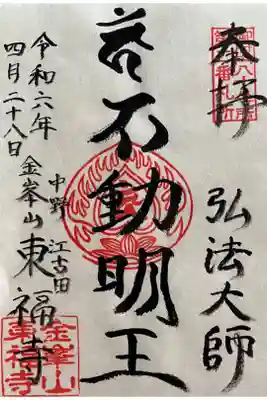 奉拝
弘法大師
苔不動明王
令和六年
四月二十八日
中野 江古田
金峯山 東福寺
金峯山
東福寺